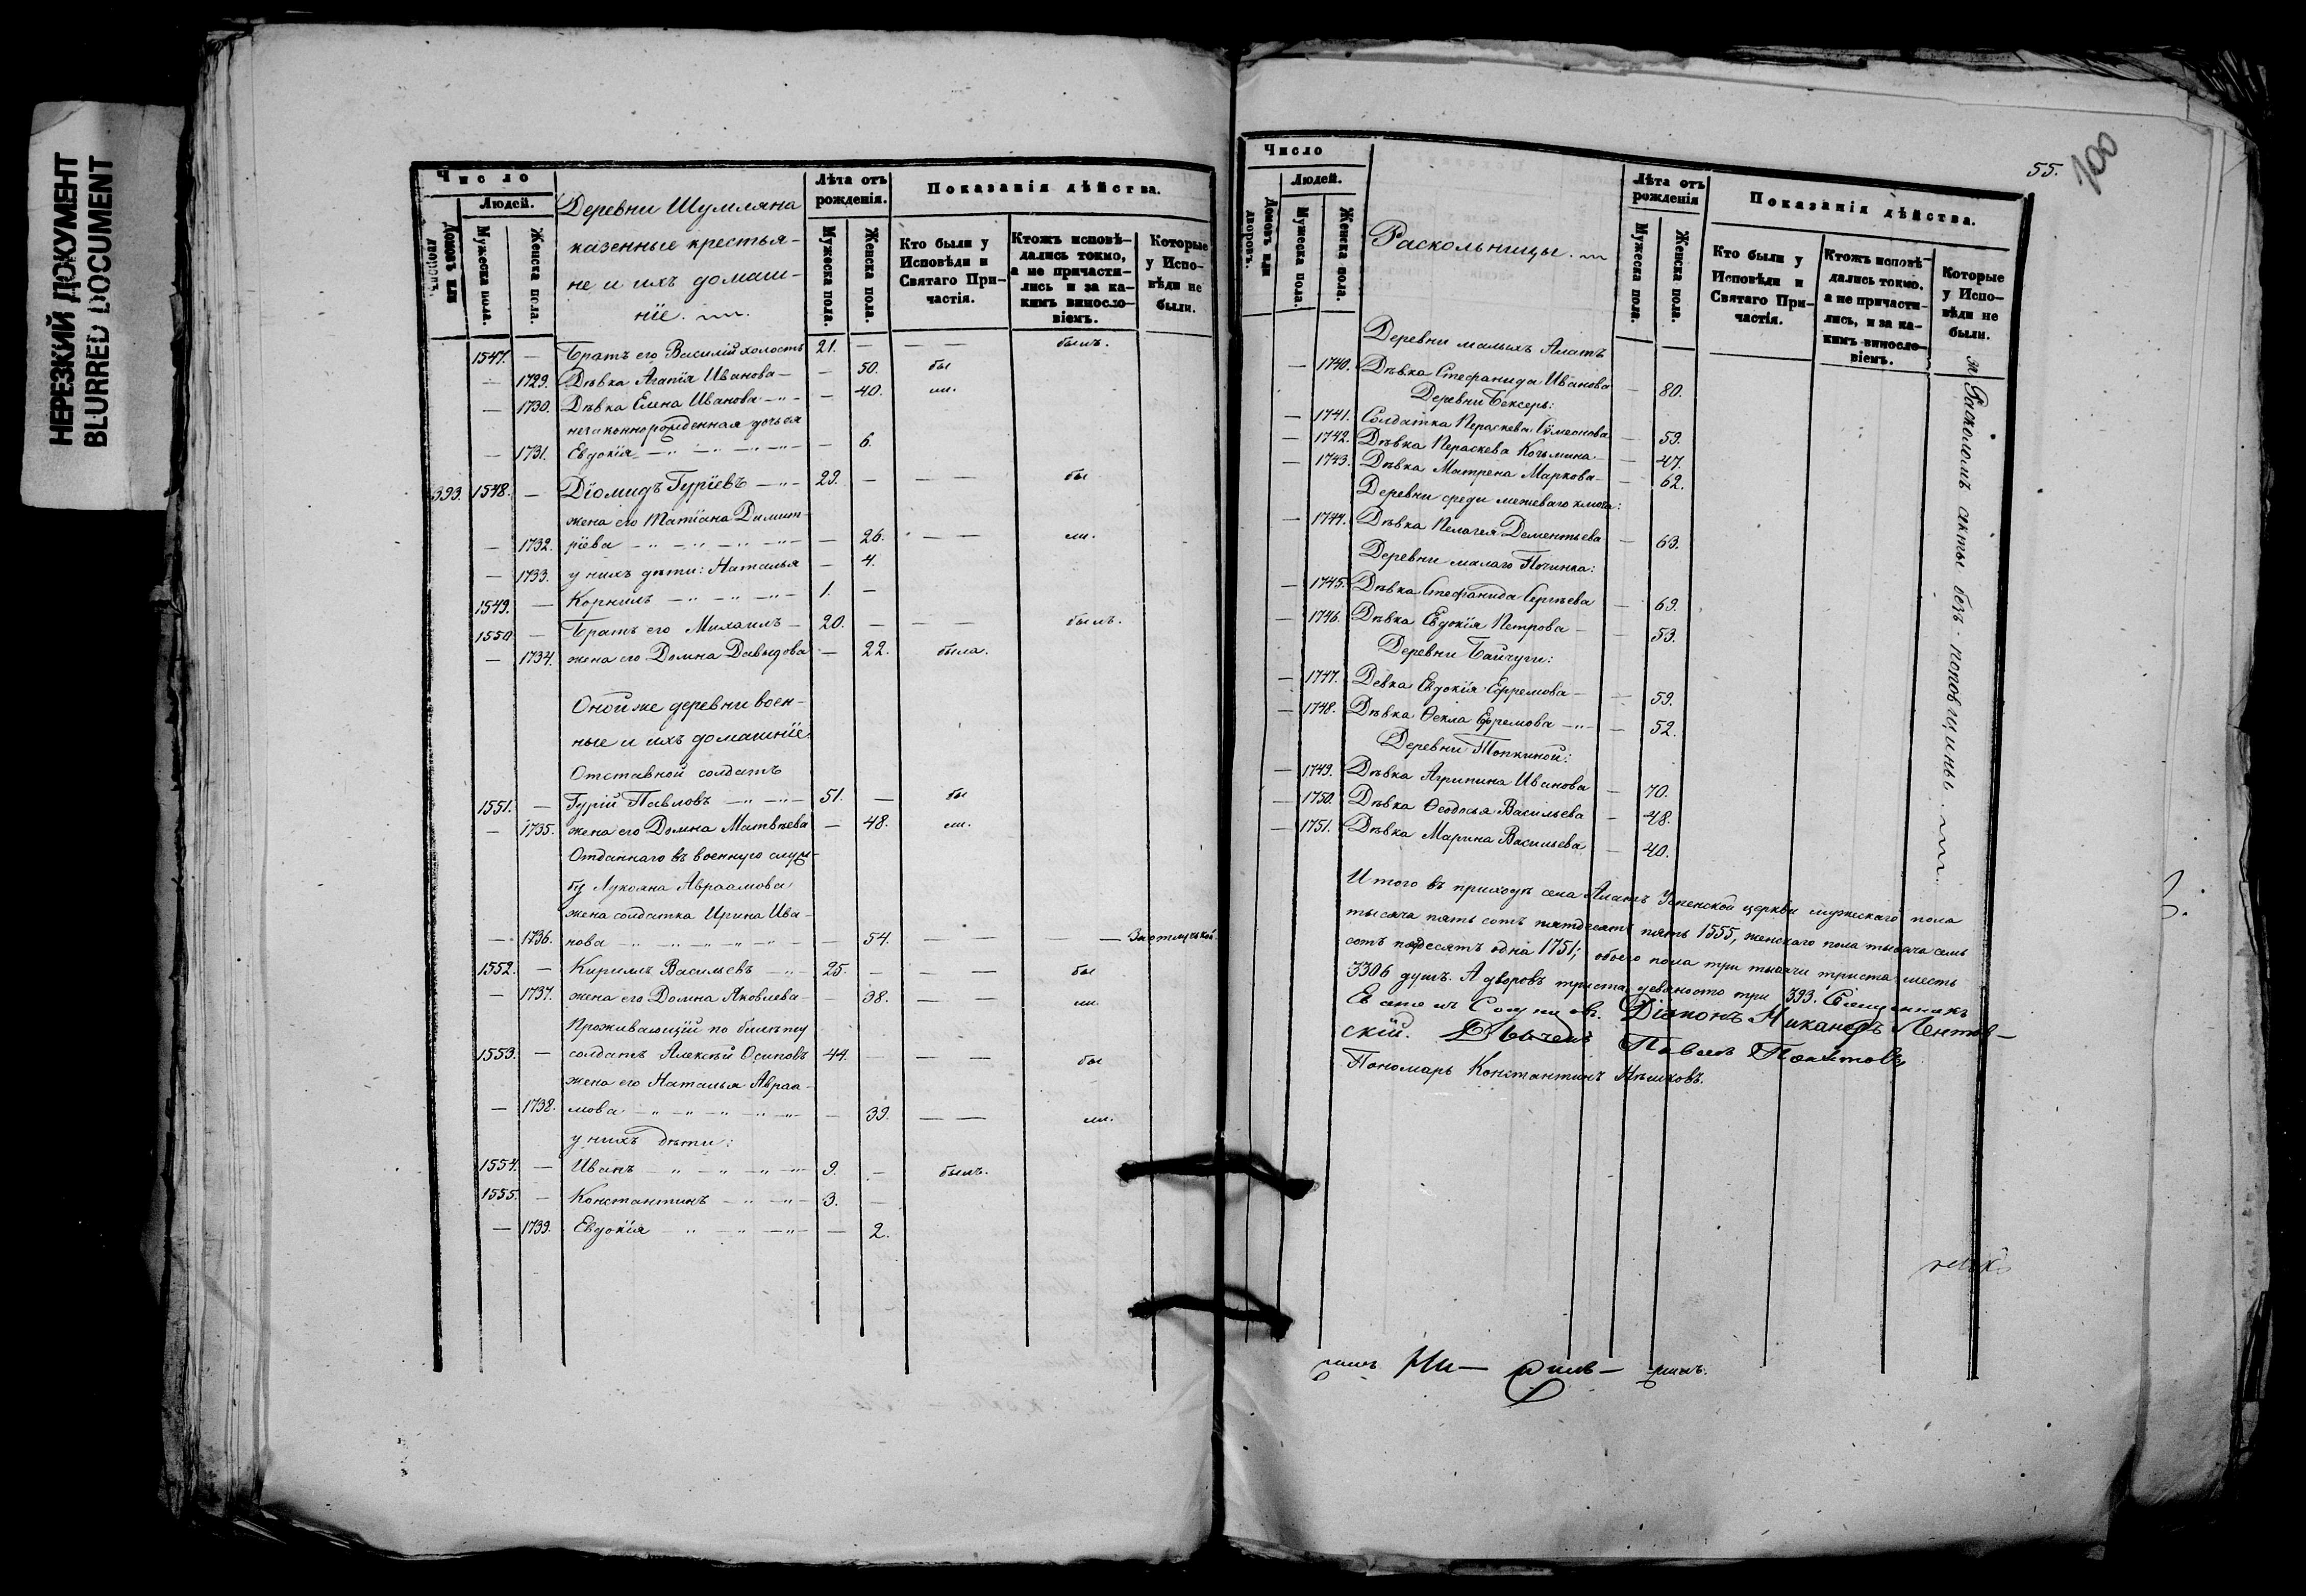 НЕРЕЗКИЙ ДОКУМЕНТ
BLURRED DOCUMENT
Число
Людей.
Домовъ или дворовъ.
Мужеска пола.
Женска пола.
Деревни Шумляна
казенные крестья-
не и ихъ домаш-
ніе.
Лѣта отъ рожденія.
Мужеска пола.
Женска пола.
Показанія дѣйства.
Кто были у Исповѣди и Святаго При-частія.
Ктожъ исповѣ-дались токмо, а не причасти-лись и за ка-кимъ винosло-віемъ.
Которые у Испо-вѣди не были.
1547. — Братъ его Василій холостъ 21. — — — былъ.
— 1729. Дѣвка Агапія Иванова — — 50. бы
— 1730. Дѣвка Елена Иванова — — 40. ли.
незаконнорожденная дочь ея
— 1731. Евдокія — — 6.
393. 1548. — Діомидъ Гуріевъ — 29. — — — бы
жена его Татіана Димит-
— 1732. ріева — — 26. — — ли.
— 1733. у нихъ дѣти: Наталья — 4.
1549. — Корнилъ — 1. —
1550 — Братъ его Михаилъ — 20. — — — былъ.
— 1734. жена его Домна Давыдова — 22. была.
Оной же деревни воен-
ные и ихъ домашніе
Отставной солдатъ
1551. — Гурій Павловъ — 51. — бы
— 1735. жена его Домна Матвѣева — 48. ли.
Отданнаго въ военную служ-
бу Лукояна Авраамова
жена солдатка Ирина Ива-
— 1736. нова — — 54. — — — За отлучкой
1552. — Кирилъ Васильевъ — 25. — — — бы
— 1737. жена его Домна Яковлева — — 38. — — ли.
Проживающій по билету
1553. — солдатъ Алексѣй Осиповъ 44. — — — бы
жена его Наталья Авраа-
— 1738. мова — — 39. — — ли.
у нихъ дѣти:
1554. — Иванъ — 9. — былъ.
1555. — Константинъ — 3. —
— 1739. Евдокія — — 2.
55.
100
Число
Людей.
Домовъ или дворовъ.
Мужеска пола.
Женска пола.
Раскольницы.
Лѣта отъ рожденія
Мужеска пола.
Женска пола.
Показанія дѣйства.
Кто были у Исповѣди и Святаго При-частія.
Ктожъ исповѣ-дались токмо, а не причасти-лись, и за ка-кимъ винoсло-віемъ.
Которые у Испо-вѣди не были.
за Расколомъ секты безъ-поповщины.
Деревни малыхъ Алатъ
— 1740. Дѣвка Стефанида Иванова — 80.
Деревни Бексеръ:
— 1741. Солдатка Параскева Сумеонова — 59.
— 1742. Дѣвка Параскева Козьмина — 47.
— 1743. Дѣвка Матрена Маркова — 62.
Деревни среди межеваго ключа:
— 1744. Дѣвка Пелагея Дементьева — 63.
Деревни малаго Починка:
— 1745. Дѣвка Стефанида Сергѣева — 69.
— 1746. Дѣвка Евдокія Петрова — 53.
Деревни Байчуги:
— 1747. Девка Евдокія Ефремова — 59.
— 1748. Дѣвка Ѳекла Ефремова — 52.
Деревни Топкиной:
— 1749. Дѣвка Агрипина Иванова — 70.
— 1750. Дѣвка Ѳеодосья Васильева — 48.
— 1751. Дѣвка Марина Васильева — 40.
Итого въ приходѣ села Алатъ Успенской церкви мужескаго пола
тысяча пять сотъ пятдесятъ пять 1555, женскаго пола тысяча семь
сотъ пядесятъ одна 1751; обоего пола три тысячи триста шесть
3306 душъ. А дворовъ триста девяносто три 393. Священникъ
Діаконъ Никаноръ Лентов-
скій. Павелъ
Пономарь Константинъ